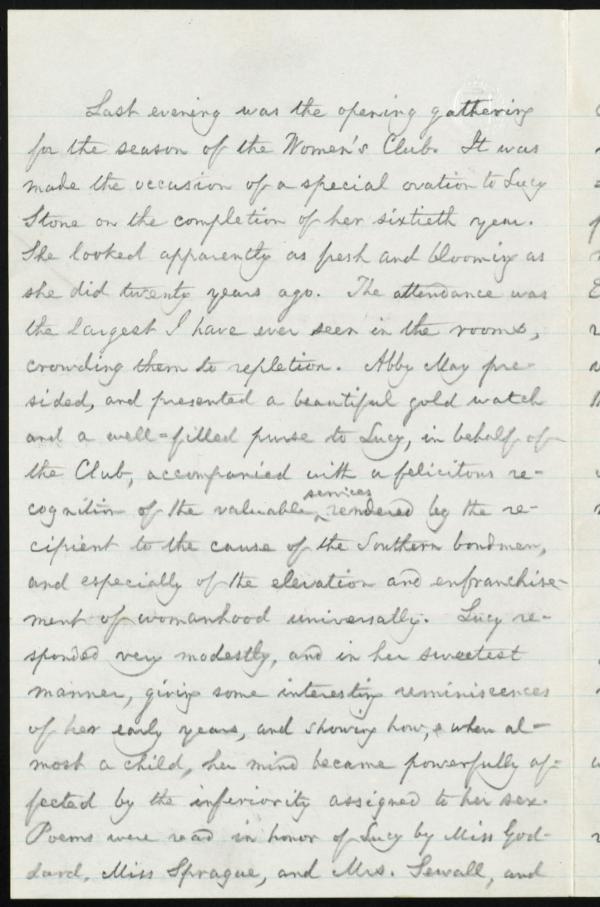 Last evening was the opening gathering
for the season of the Women's Club. It was
made the occasion of a special ovation to Lucy
Stone on the completion of her sixtieth year.
She looked apparently as fresh and blooming as
she did twenty years ago. The attendance was
the largest I have ever seen in the rooms,
crowding them to repletion. Abby May pre-
sided, and presented a beautiful gold watch
and a well=filled purse to Lucy, in behalf of
the Club, accompanied with a felicitous re-
cognition of the valuable services rendered by the re-
cipient to the cause of the Southern bondmen,
and especially of the elevation and enfranchise-
ment of womanhood universally. Lucy re-
sponded very modestly, and in her sweetest
manner, giving some interesting reminiscences
of her early years, and showing how, when al-
most a child, her mind became powerfully af-
fected by the inferiority assigned to her sex.
Poems were read in honor of Lucy by Miss God-
dard, Miss Sprague, and Mrs. Sewall, and